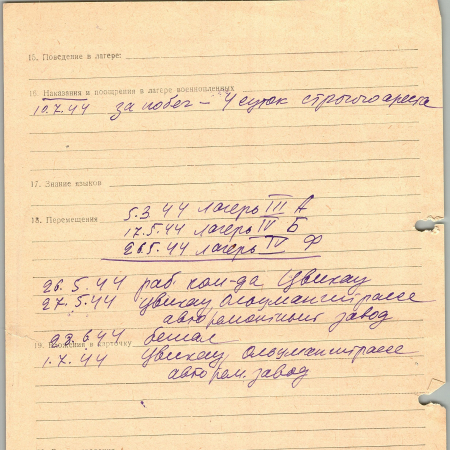 15. Поведение в лагере:
16. Наказания и поощрения в лагере военнопленных
10.7.44 за побег – 4 суток строгого ареста
17. Знание языков
18. Перемещения
5.3 44 лагерь III А
17.5.44 лагерь IV Б
26.5.44 лагерь IV Ф
26.5.44 раб ком-да Цвикау
27.5.44 Цвикау
авторемонтный завод
23.6.44 бежал
19. в карточку
1.7.44 Цвикау
авто рем. завод